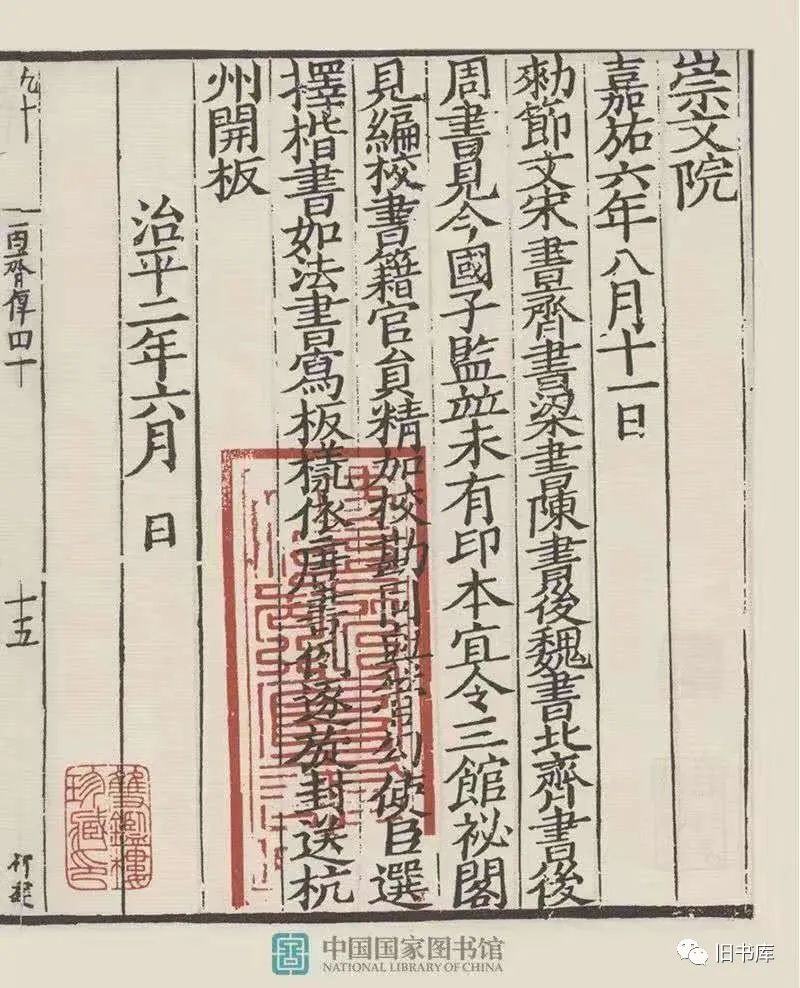 崇文院
嘉祐六年八月十一日
勑節文宋書齊書梁書陳書後魏書北齊書後
周書見今國子監並未有印本宜令三館祕閣
見編校書籍官貟精加校勘同與管勾使臣選
擇楷書如法書寫板樣依唐書例逐旋封送杭
州開板
治平二年六月 日
雙鑑樓
珍藏印
齊傳四十
十五
中国国家图书馆
NATIONAL LIBRARY OF CHINA
旧书库